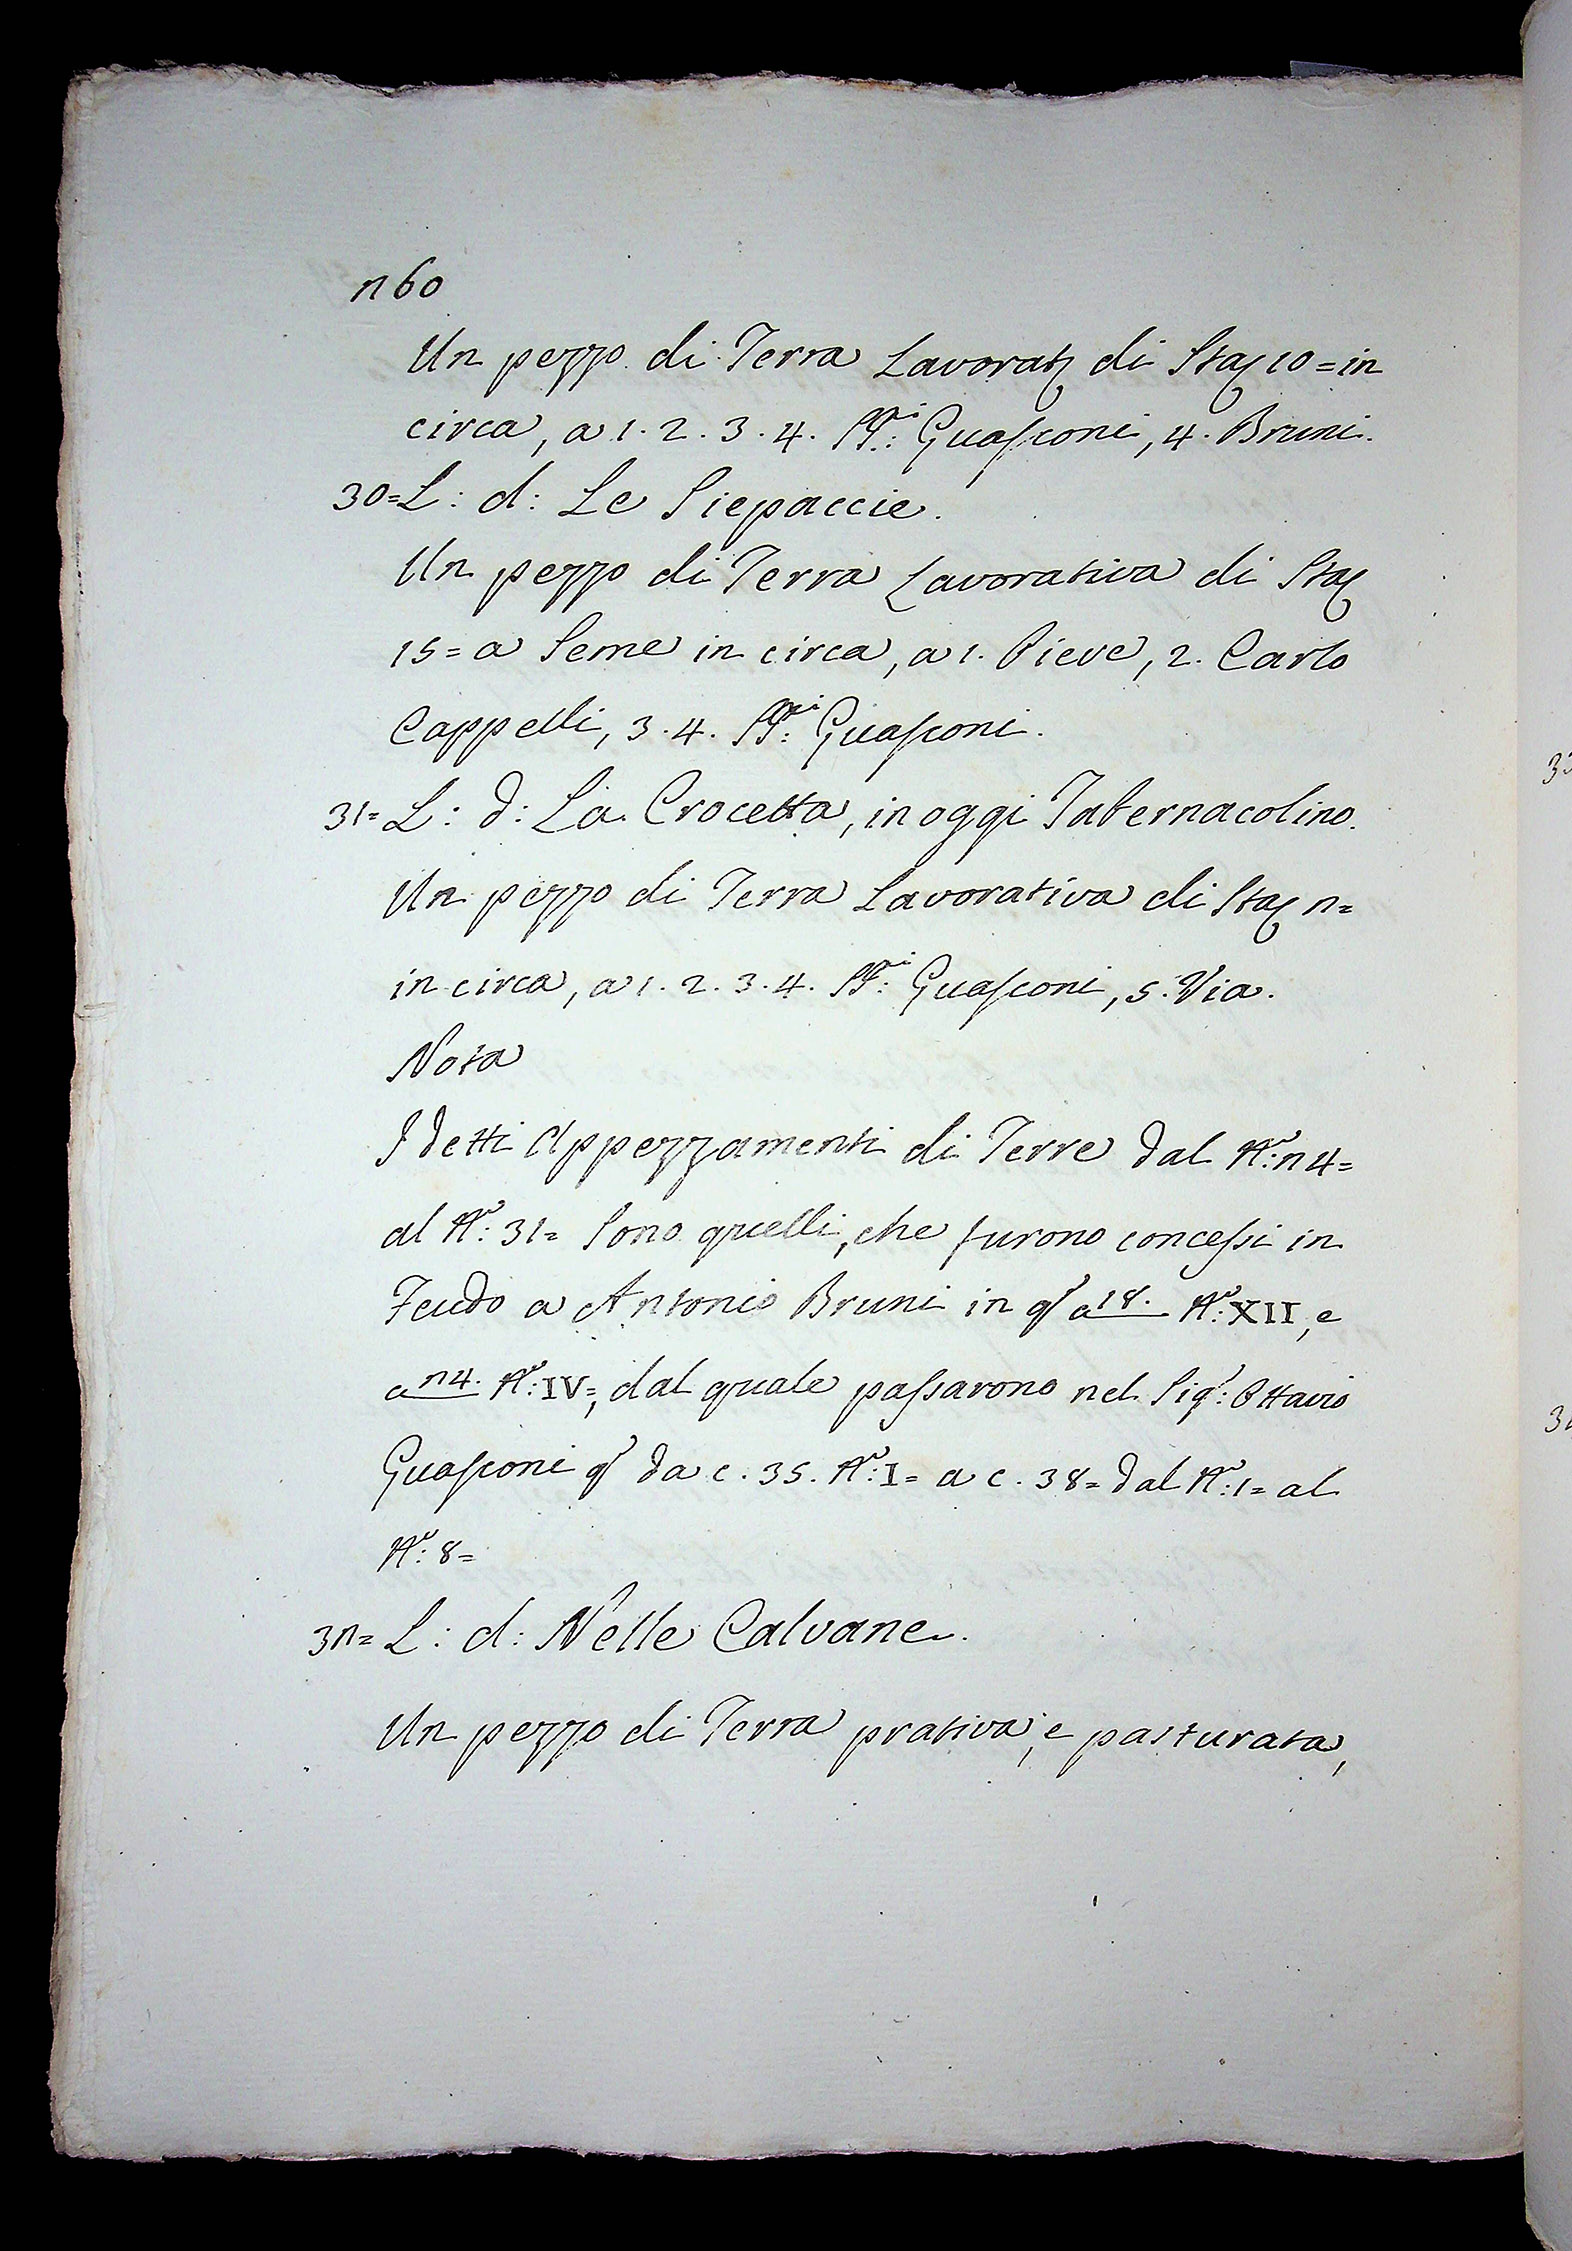 260
Un pezzo di Terra Lavorat: di Sta: 10= in
circa, a 1. 2. 3. 4. SS:ri Guasconi, 4. Bruni.
30= L: d: Le Siepaccie.
Un pezzo di Terra Lavorativa di Sta:
15= a Seme in circa, a 1. Pieve, 2. Carlo
Cappelli, 3. 4. SS:ri Guasconi.
31= L: d: La Crocetta, in oggi Tabernacolino.
Un pezzo di Terra Lavorativa di Sta: 2=
in circa, a 1. 2. 3. 4. SS:ri Guasconi, 5. Via.
Nota
I detti Appezzamenti di Terre dal N:o 24=
al N:o 31= Sono quelli, che furono concessi in
Feudo a Antonio Bruni in q:o a 18. N:o XII, e
a 24. N:o IV=, dal quale passarono nel Sig:r Ottavio
Guasconi q:o da c. 35. N:o I= a c. 38= dal N:o 1= al
N:o 8=
32= L: d: Nelle Calvane.
Un pezzo di Terra prativa, e pasturata,